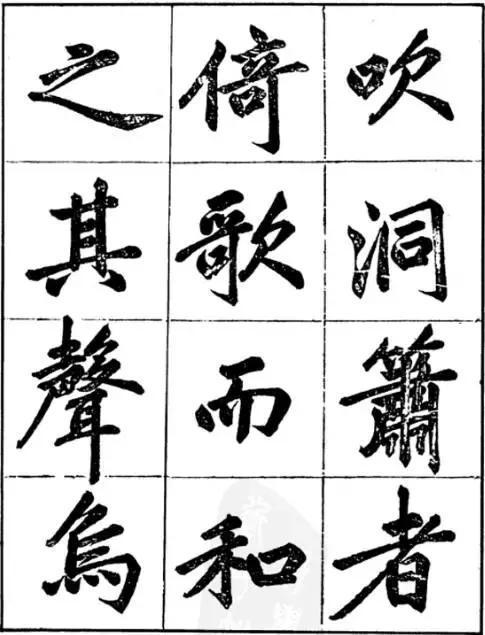 吹洞簫者
倚歌而和
之其聲烏